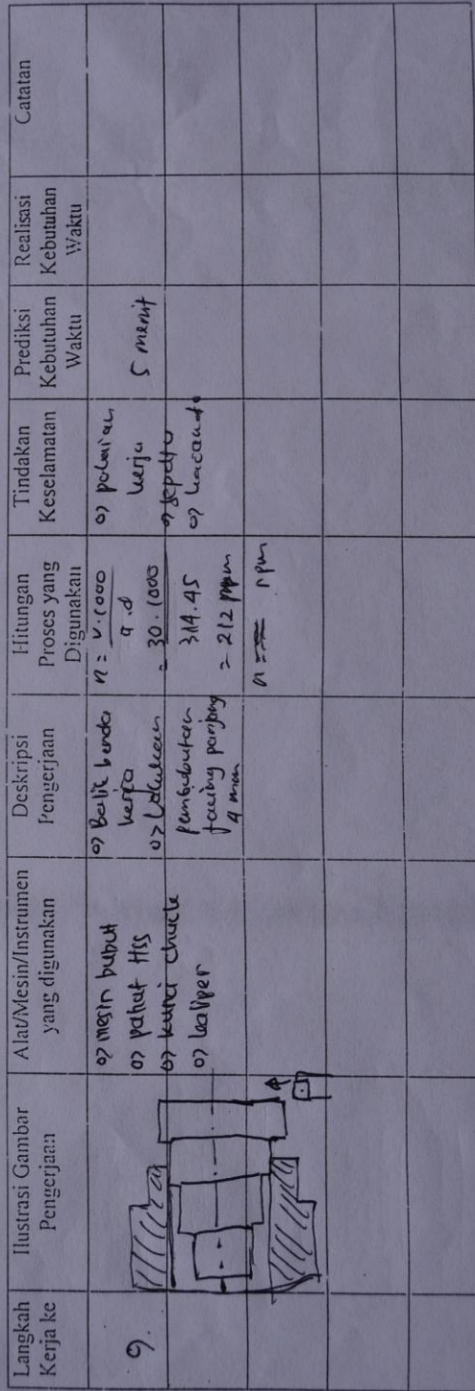 Langkah
Kerja ke
Ilustrasi Gambar
Pengerjaan
Alat/Mesin/Instrumen
yang digunakan
Deskripsi
Pengerjaan
Hitungan
Proses yang
Digunakan
Tindakan
Keselamatan
Prediksi
Kebutuhan
Waktu
Realisasi
Kebutuhan
Waktu
Catatan
9.
o) mesin bubut
o) pahat HSS
o) kunci chuck
o) kaliper
o) Balik benda
kerja
o) Lakukan
pembubutan
facing panjang
4 mm
n = v.1000
π.d
= 30.1000
3,14.45
= 212 rpm
n = rpm
o) pakaian
kerja
o) sepatu
o) kacamata
5 menit